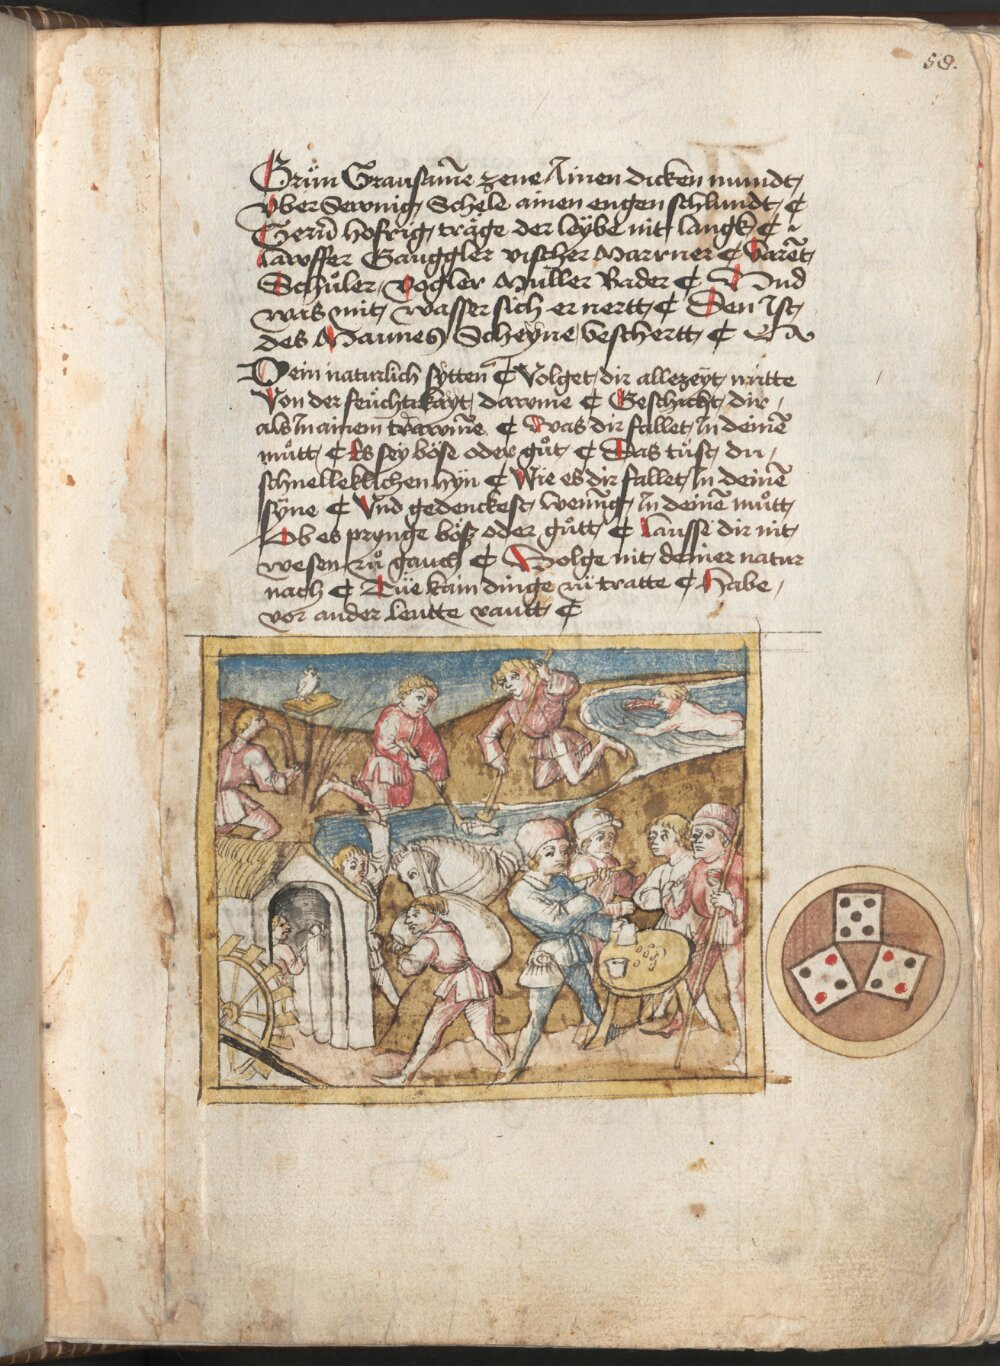 59.
Grün Grausame zene Ainen dicken mundt
Vber Sennig Schele ainen engen schlundt ¢
Gern hofrig träge der leybe nit langk ¢
Lawffer Gauggler vischer Marrner ¢ varēt
Schůler Vogler Müller Bader ¢ Vnd
was mit wasser sich ernertt ¢ Den Ist
des Mannes Scheyne beschertt ¢
Dein naturlich sytten ¢ Volget dir allezeyt mitte
Von der feüchtikayt dawme ¢ Geschicht dir
als In ainem trawme ¢ Was dir fallet In deinē
můtt ¢ Es sey böse oder gůt ¢ Das tůst du
schnelleklichen hyn ¢ Wie es dir fallet In deinē
syne ¢ Vnd gedenckest wennig In deinē můtt
Ob es prynge böß oder gůtt ¢ Lausse dir nit
wesen zů gauch ¢ Volge nit deiner natur
nach ¢ Tüe kain dinge zů tratte ¢ Habe
vor ander leutte rautt ¢